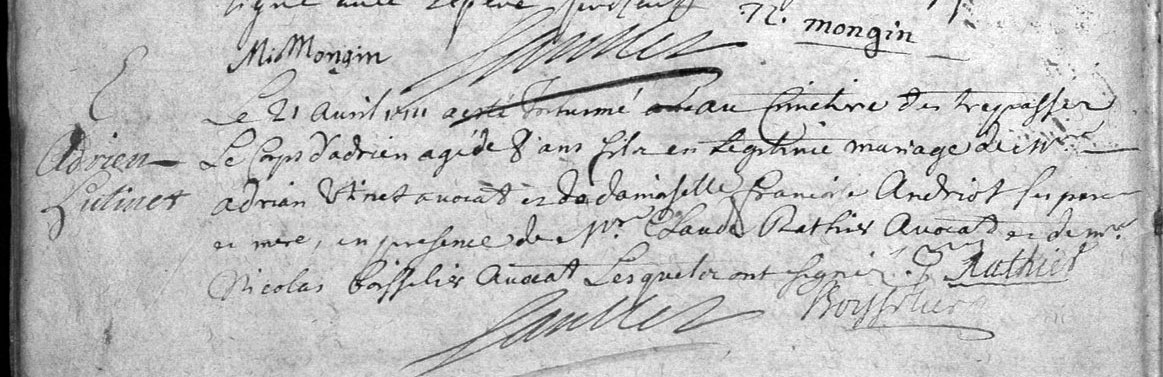 signé avec
N. mongin
M. Mongin
Gaultier
Le 21 Avril 1711 a esté Inhumé au Cimetiere des trepassez
Adrien
Le Corps d'adrien agé de 8 ans fils en Legitime mariage de Mre
Lutinet
adrian Utinet avocat et de damoiselle Francoise Andriot ses pere
et mere, en presence de Mr. Claude Rathier Avocat et de mre
Nicolas boisselier Avocat Lesquels ont signé. Rathier
Boisselier
Gaultier